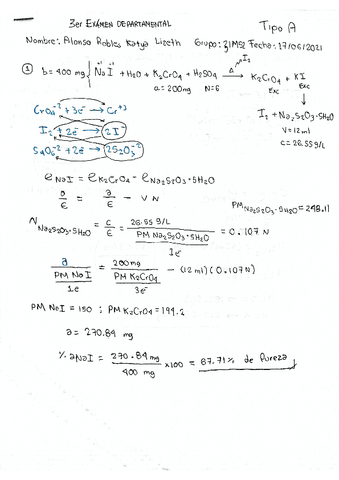 3er EXÁMEN DEPARTAMENTAL
Tipo A
Nombre: Alonso Robles Katya Lizeth Grupo: 3IM52 Fecha: 17/06/2021
① b = 400 mg { NaI + H2O + K2CrO4 + H2SO4 → Δ I2 K2CrO4 + KI
a = 200mg N=6 Exc Exc
I2 + Na2S2O3·5H2O
V = 12 ml
c = 26.55 g/L
CrO4-2 + 3e → Cr+3
I2 + 2e → 2I-
S4O6-2 + 2e → 2S2O3-2
e NaI = e K2CrO4 - e Na2S2O3·5H2O
a/E = a/E - VN
PM Na2S2O3·5H2O = 248.11
N Na2S2O3·5H2O = c/E = 26.55 g/L / PM Na2S2O3·5H2O / 1e = 0.107 N
a / PM NaI / 1e = 200mg / PM K2CrO4 / 3e - (12 ml)(0.107N)
PM NaI = 150 ; PM K2CrO4 = 194.2
a = 270.84 mg
% a NaI = 270.84 mg / 400 mg x100 = 67.71% de Pureza